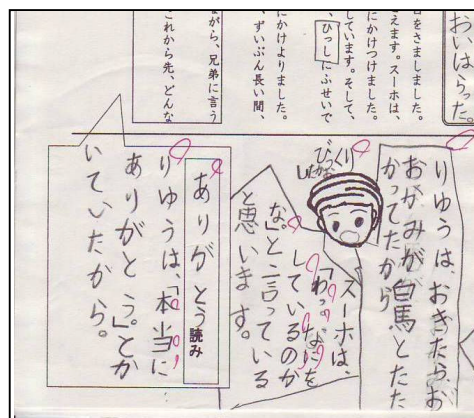 おいはらった。
目をさましました。
さえます。スーホは、
にかけつけました。
しています。そして、
ひっしにふせいで
にかけよりました。
、ずいぶん長い間、
ながら、兄弟に言う
これから先、どんな
りゆうは、おきたら、お
おかみが白馬とたた
かってたから
びっくり
したかお
スーホは、
「わっ。なにを
しているのか
な。」と言っている
と思います。
ありがとう読み
りゆうは、「本当に
ありがとう。」とか
いていたから。